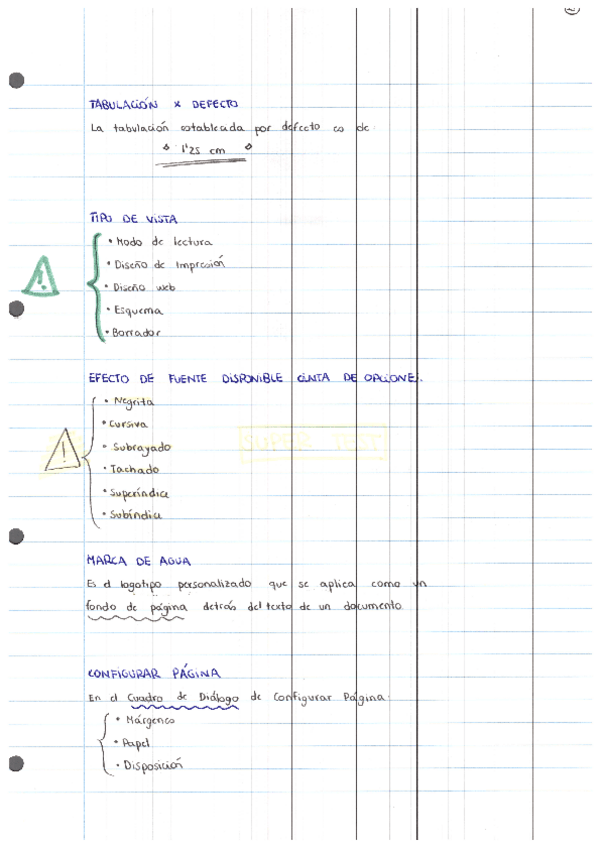 TABULACIÓN x DEFECTO
La tabulación establecida por defecto es de
1'25 cm
TIPO DE VISTA
• Modo de lectura
• Diseño de Impresión
• Diseño web
• Esquema
• Borrador
EFECTO DE FUENTE DISPONIBLE CINTA DE OPCIONES.
• Negrita
• Cursiva
• Subrayado
• Tachado
• Superíndice
• Subíndice
SUPER TEST
MARCA DE AGUA
Es el logotipo personalizado que se aplica como un
fondo de página detrás del texto de un documento
CONFIGURAR PÁGINA
En el Cuadro de Diálogo de Configurar Página.
• Márgenes
• Papel
• Disposición